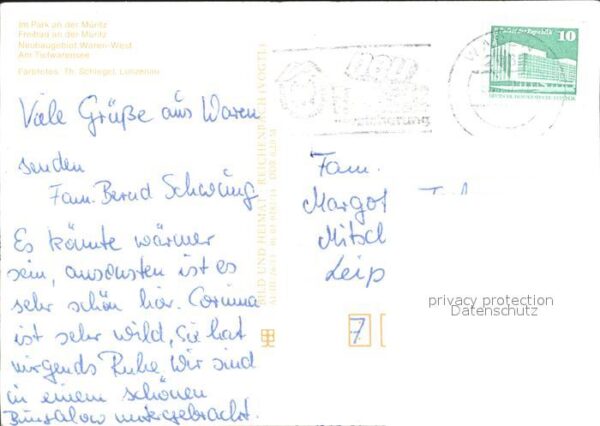 Im Park an der Müritz
Freibad an der Müritz
Neubaugebiet Waren-West
Am Tiefwarensee
Farbfotos: Th. Schlegel, Lunzenau
Viele Grüße aus Waren
senden
Fam. Bernd Schwung
Es könnte wärmer
sein, ansonsten ist es
sehr schön hier. Corinna
ist sehr wild, Sie hat
nirgends Ruhe. Wir sind
in einem schönen
Bungalow untergebracht.
BILD UND HEIMAT REICHENBACH (VOGTL)
10
DEUTSCHE DEMOKRATISCHE REPUBLIK
Fam.
Margot
Mitsch
Leip
7
privacy protection
Datenschutz